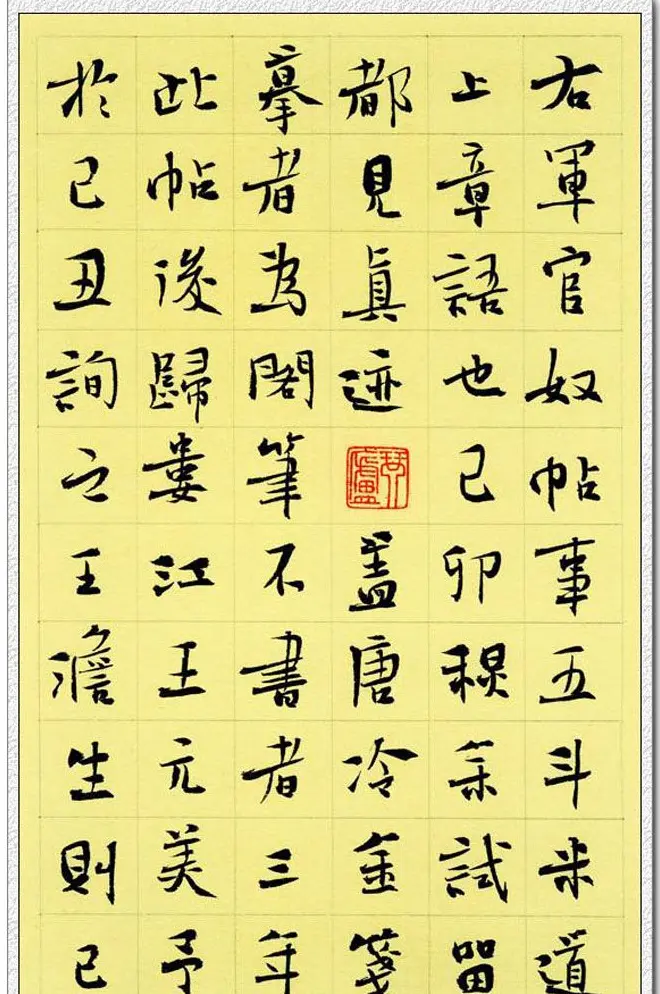 右軍官奴帖事五斗米道
上章語也己卯穐余試留
都見真迹蓋唐冷金箋
摹者為閣筆不書者三年
此帖後歸婁江王元美予
於己丑詢之王澹生則已